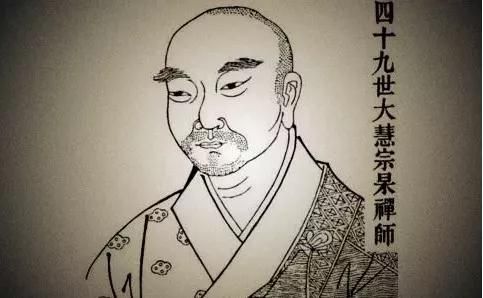 四十九世大慧宗杲禪師